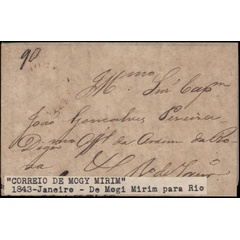 90
Illmo Snr Capm
João Gonsalves Pereira
Offl da Ordem da Ro
sa
"CORREIO DE MOGY MIRIM"
1843-Janeiro - De Mogi Mirim para Rio